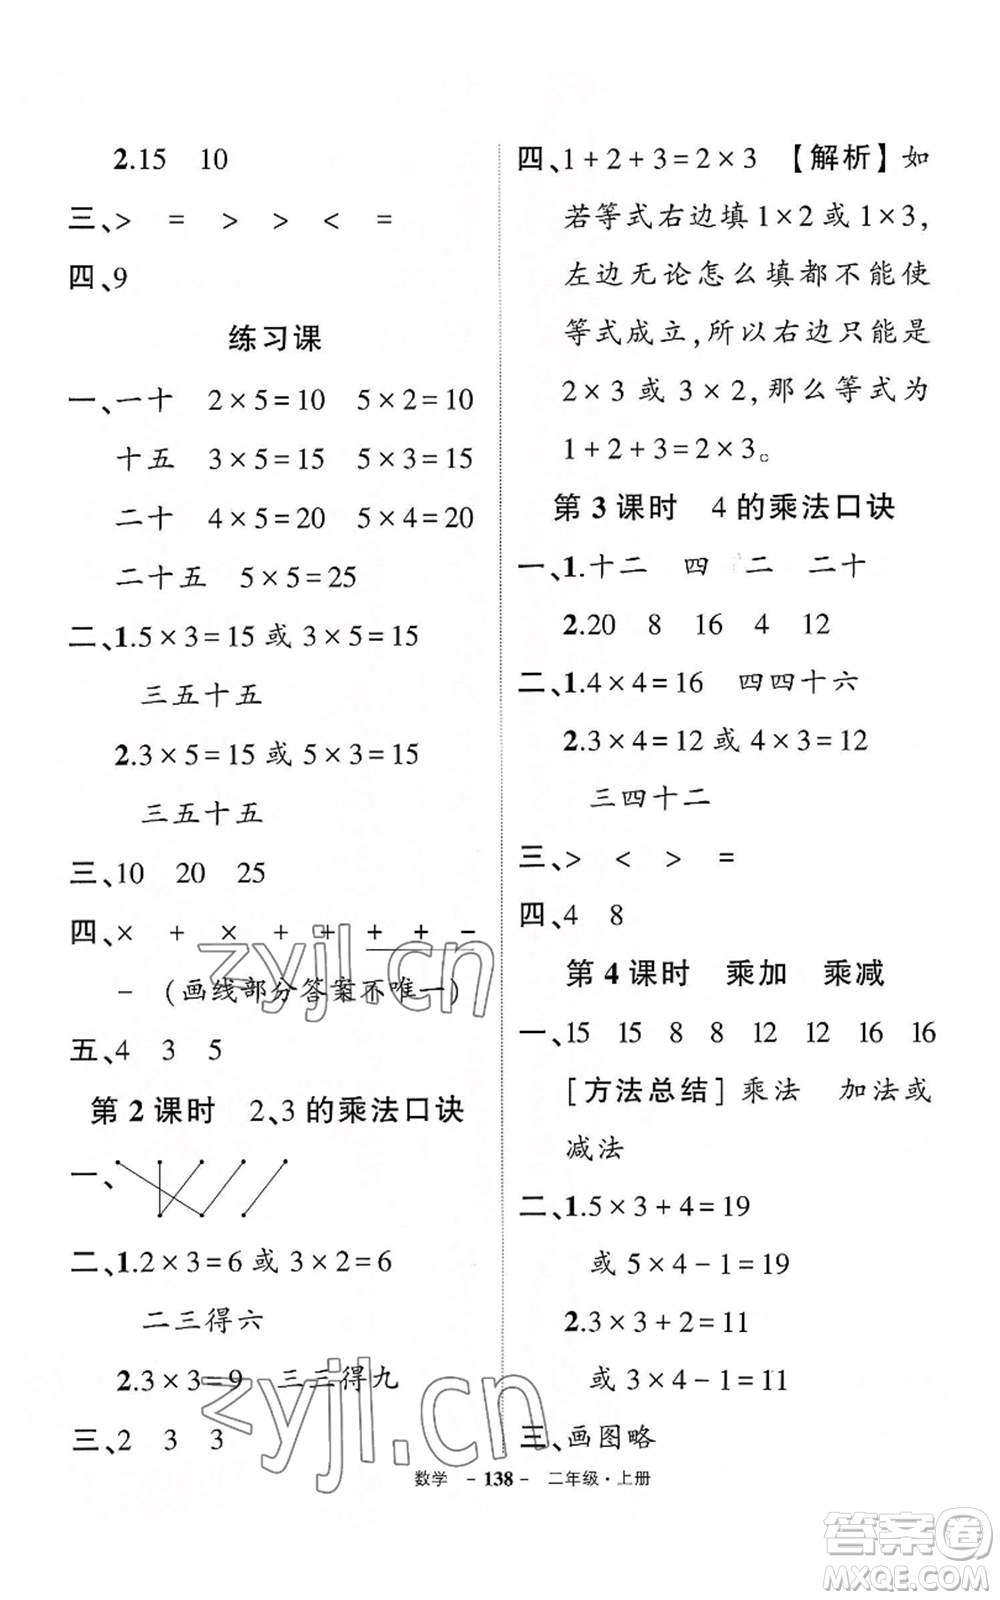 2.15 10
三、> = > > < =
四、9
练习课
一、一十 2×5=10 5×2=10
十五 3×5=15 5×3=15
二十 4×5=20 5×4=20
二十五 5×5=25
二、1.5×3=15 或 3×5=15
三五十五
2.3×5=15 或 5×3=15
三五十五
三、10 20 25
四、× + × + + + + -
- (画线部分答案不唯一)
五、4 3 5
第 2 课时 2、3 的乘法口诀
一、
二、1.2×3=6 或 3×2=6
二三得六
2.3×3=9 三三得九
三、2 3 3
四、1+2+3=2×3 【解析】如
若等式右边填 1×2 或 1×3,
左边无论怎么填都不能使
等式成立,所以右边只能是
2×3 或 3×2,那么等式为
1+2+3=2×3。
第 3 课时 4 的乘法口诀
一、1.十二 四 二 二十
2.20 8 16 4 12
二、1.4×4=16 四四十六
2.3×4=12 或 4×3=12
三四十二
三、> < > =
四、4 8
第 4 课时 乘加 乘减
一、15 15 8 8 12 12 16 16
[方法总结]乘法 加法或
减法
二、1.5×3+4=19
或 5×4-1=19
2.3×3+2=11
或 3×4-1=11
三、画图略
数学 - 138 - 二年级·上册
zyjl.cn
zyjl.cn
答案圈
MXQE.COM